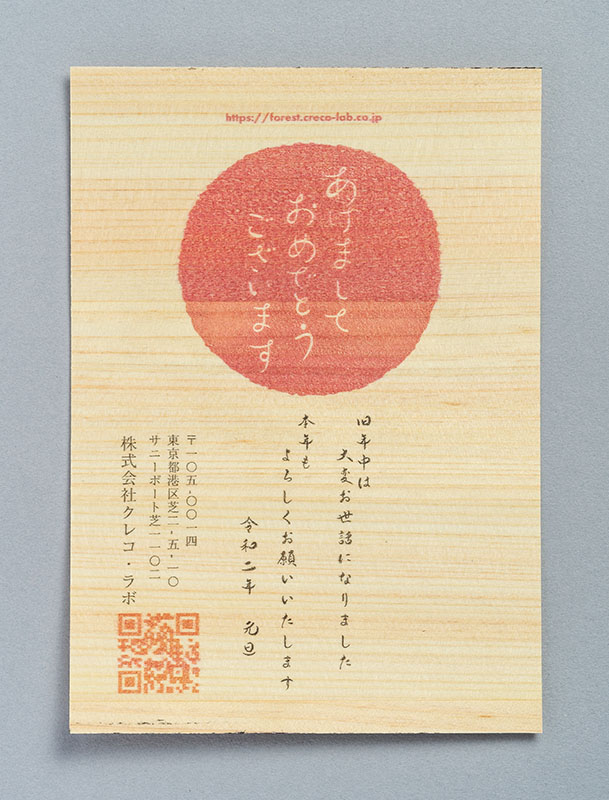 https://forest.creco-lab.co.jp
あけまして
おめでとう
ございます
旧年中は
大変お世話になりました
本年も
よろしくお願いいたします
令和二年　元旦
〒一〇五-〇〇一四
東京都港区芝二-五-一〇
サニーポート芝一一〇二
株式会社クレコ・ラボ